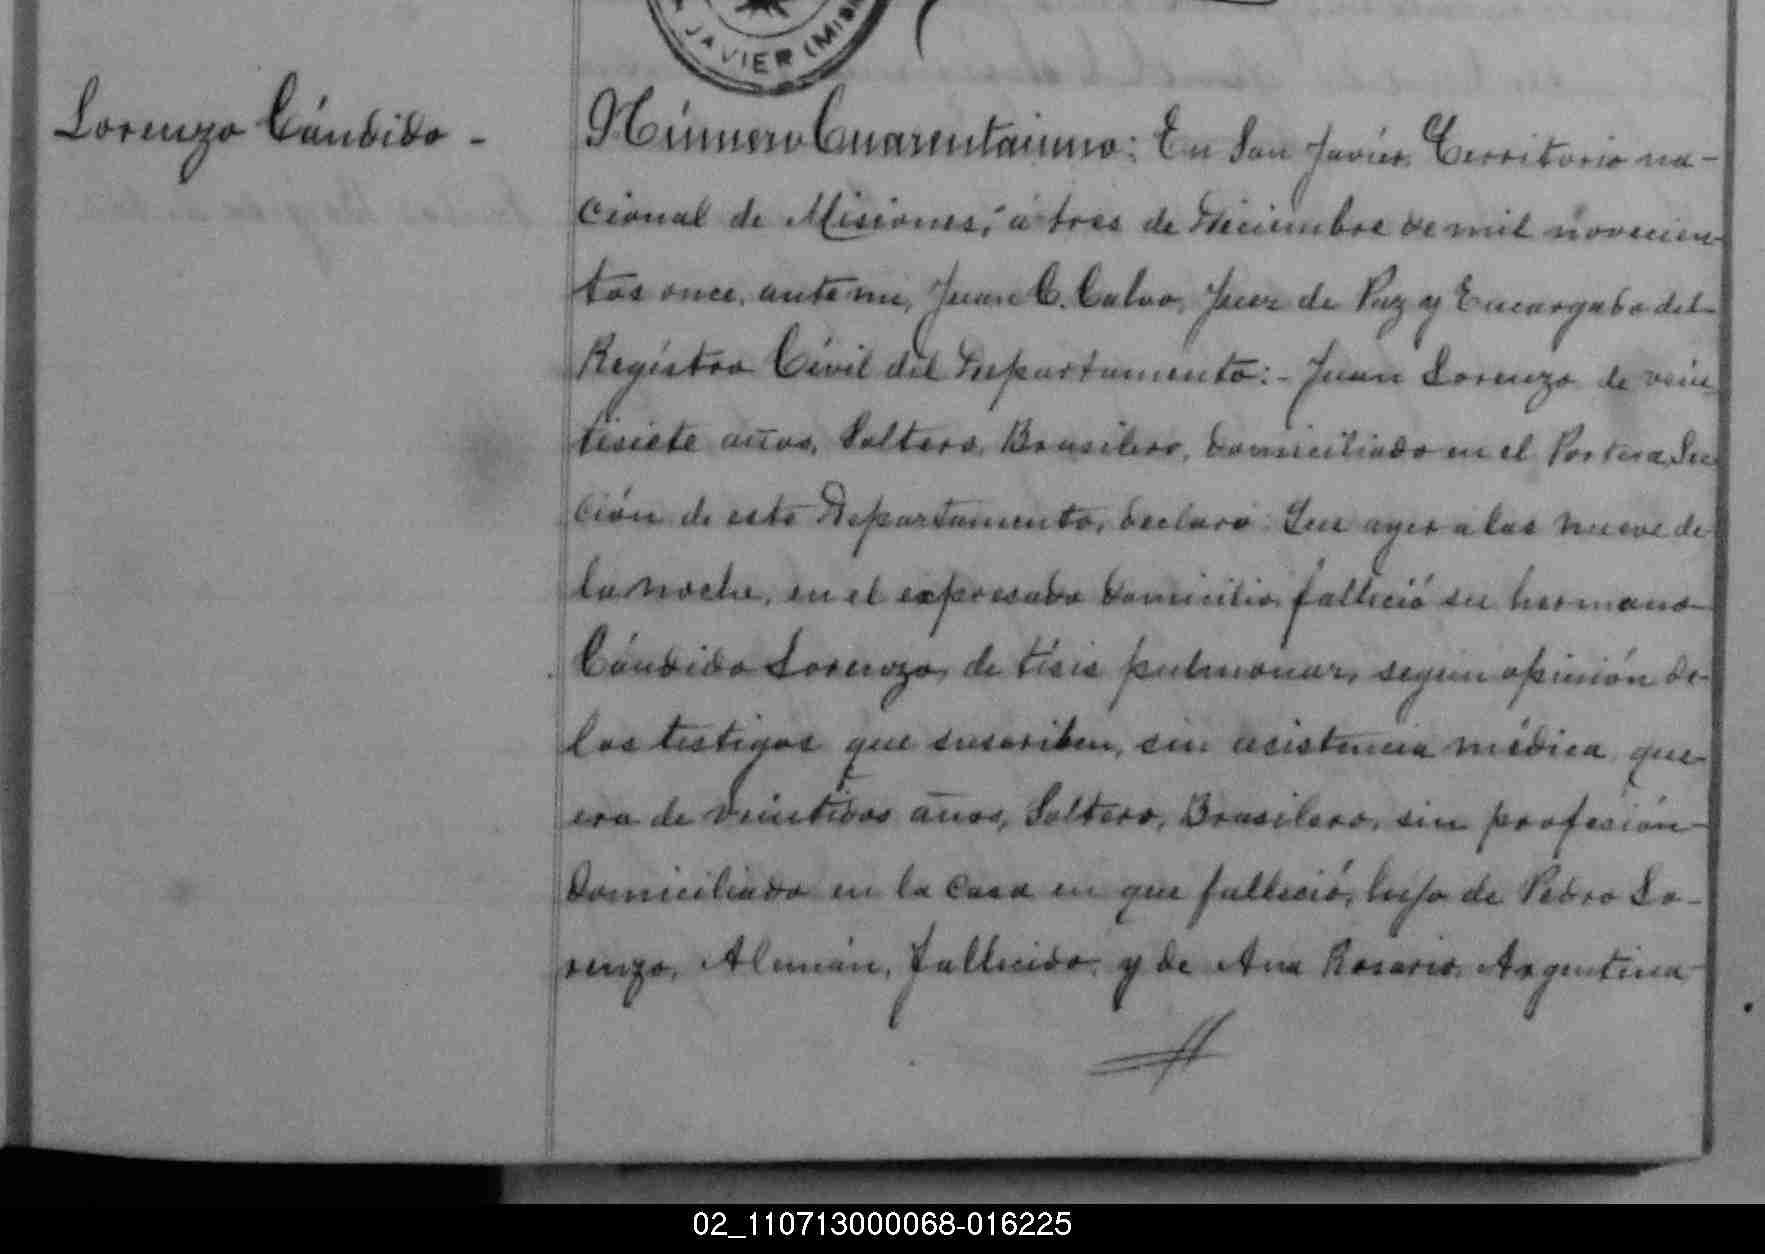 JAVIER (MIS
Lorenzo Cándido -
Número Cuarentaiuno: En San Javier, Territorio na-
cional de Misiones, á tres de Diciembre de mil novecien-
tos once, ante mi, Juan C. Calvo, Juez de Paz y Encargado del
Registro Civil del Departamento:- Juan Lorenzo, de vein
tisiete años, Soltero, Brasilero, domiciliado en el Portera, Sec
ción de este Departamento, declaró: Que ayer a las nueve de
la noche, en el expresado domicilio, falleció su hermano
Cándido Lorenzo, de tísis pulmonar, según opinión de
los testigos que suscriben, sin asistencia médica, que
era de veintidos años, Soltero, Brasilero, sin profesión
domiciliado en la casa en que falleció, hijo de Pedro Lo-
renzo, Alemán, fallecido, y de Ana Rosario, Argentina
02_110713000068-016225